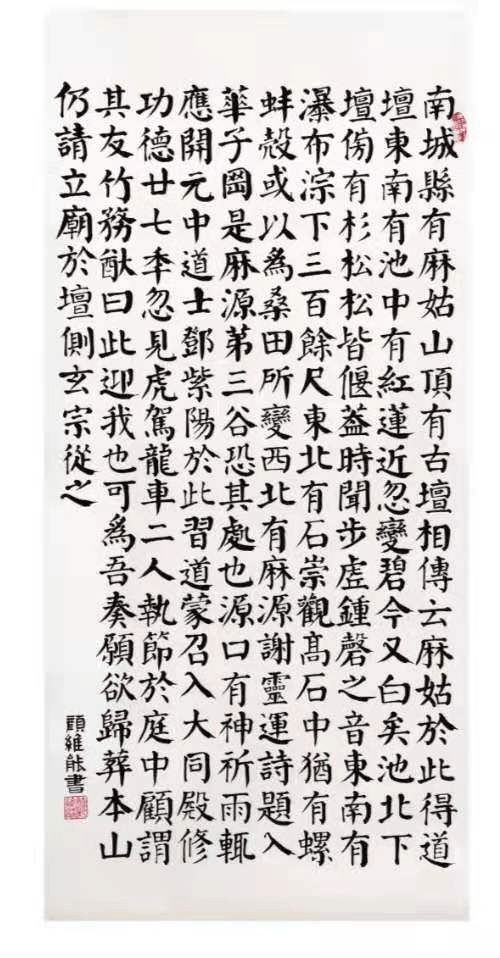 南城縣有麻姑山頂有古壇相傳云麻姑於此得道
壇東南有池中有紅蓮近忽變碧今又白矣池北下
壇傍有杉松松皆偃蓋時聞步虛鍾磬之音東南有
瀑布淙下三百餘尺東北有石崇觀高石中猶有螺
蚌殼或以為桑田所變西北有麻源謝靈運詩題入
華子岡是麻源第三谷恐其處也源口有神祈雨輒
應開元中道士鄧紫陽於此習道蒙召入大同殿修
功德廿七年忽見虎駕龍車二人執節於庭中顧謂
其友竹務猷曰此迎我也可為吾奏願欲歸葬本山
仍請立廟於壇側玄宗從之
維能書